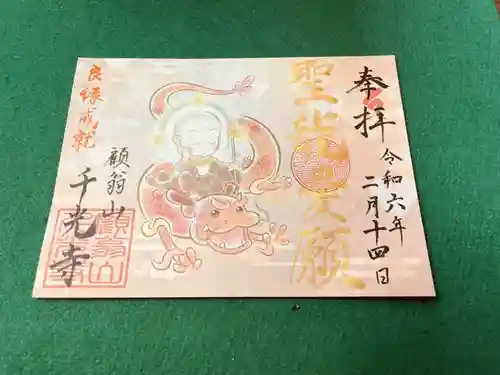 奉拝
令和六年
二月十四日
聖
願
良縁成就
顧翁山
千光寺
顧翁山